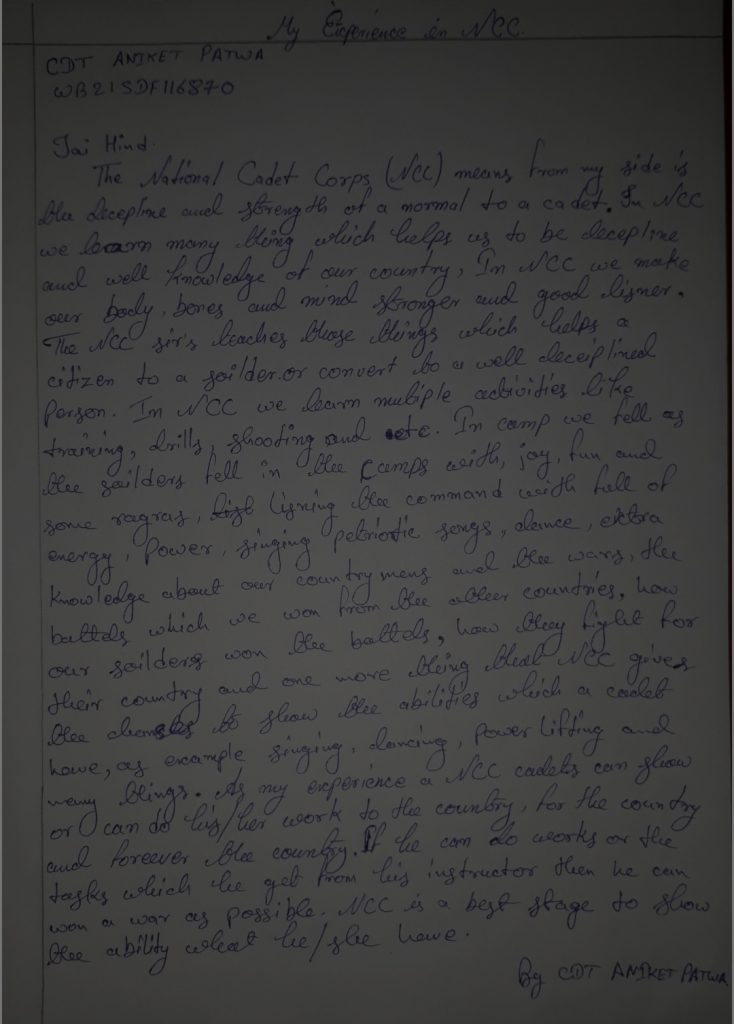 My Experience in NCC.
CDT ANIKET PATWA
WB21SDF116870
Jai Hind.
The National Cadet Corps (NCC) means from my side is
the decepline and strength of a normal to a cadet. In NCC
we learn many thing which helps us to be decepline
and well knowledge of our country, In NCC we make
our body, bones and mind stronger and good lisner.
The NCC sirs teaches those things which helps a
citizen to a soilder.or convert to a well deceiplined
Person. In NCC we learn multiple activities like
training, drills, shooting and etc. In camp we fell as
the soilders fell in the camps with, joy, fun and
some ragras, lisning the command with full of
energy, Power, singing petriotic songs, dance, extra
knowledge about our country mens and the wars, the
battels which we won from the other countries, how
our soilders won the battels, how they fight for
their country and one more thing that NCC gives
the to show the abilities which a cadet
have, as example singing, dancing, power lifting and
many things. As my experience a NCC cadets can show
or can do his/her work to the country, for the country
and foreever the country. If he can do works or the
tasks which he get from his instructor then he can
won a war as possible. NCC is a best stage to show
the ability what he/she have.
By CDT ANIKET PATWA